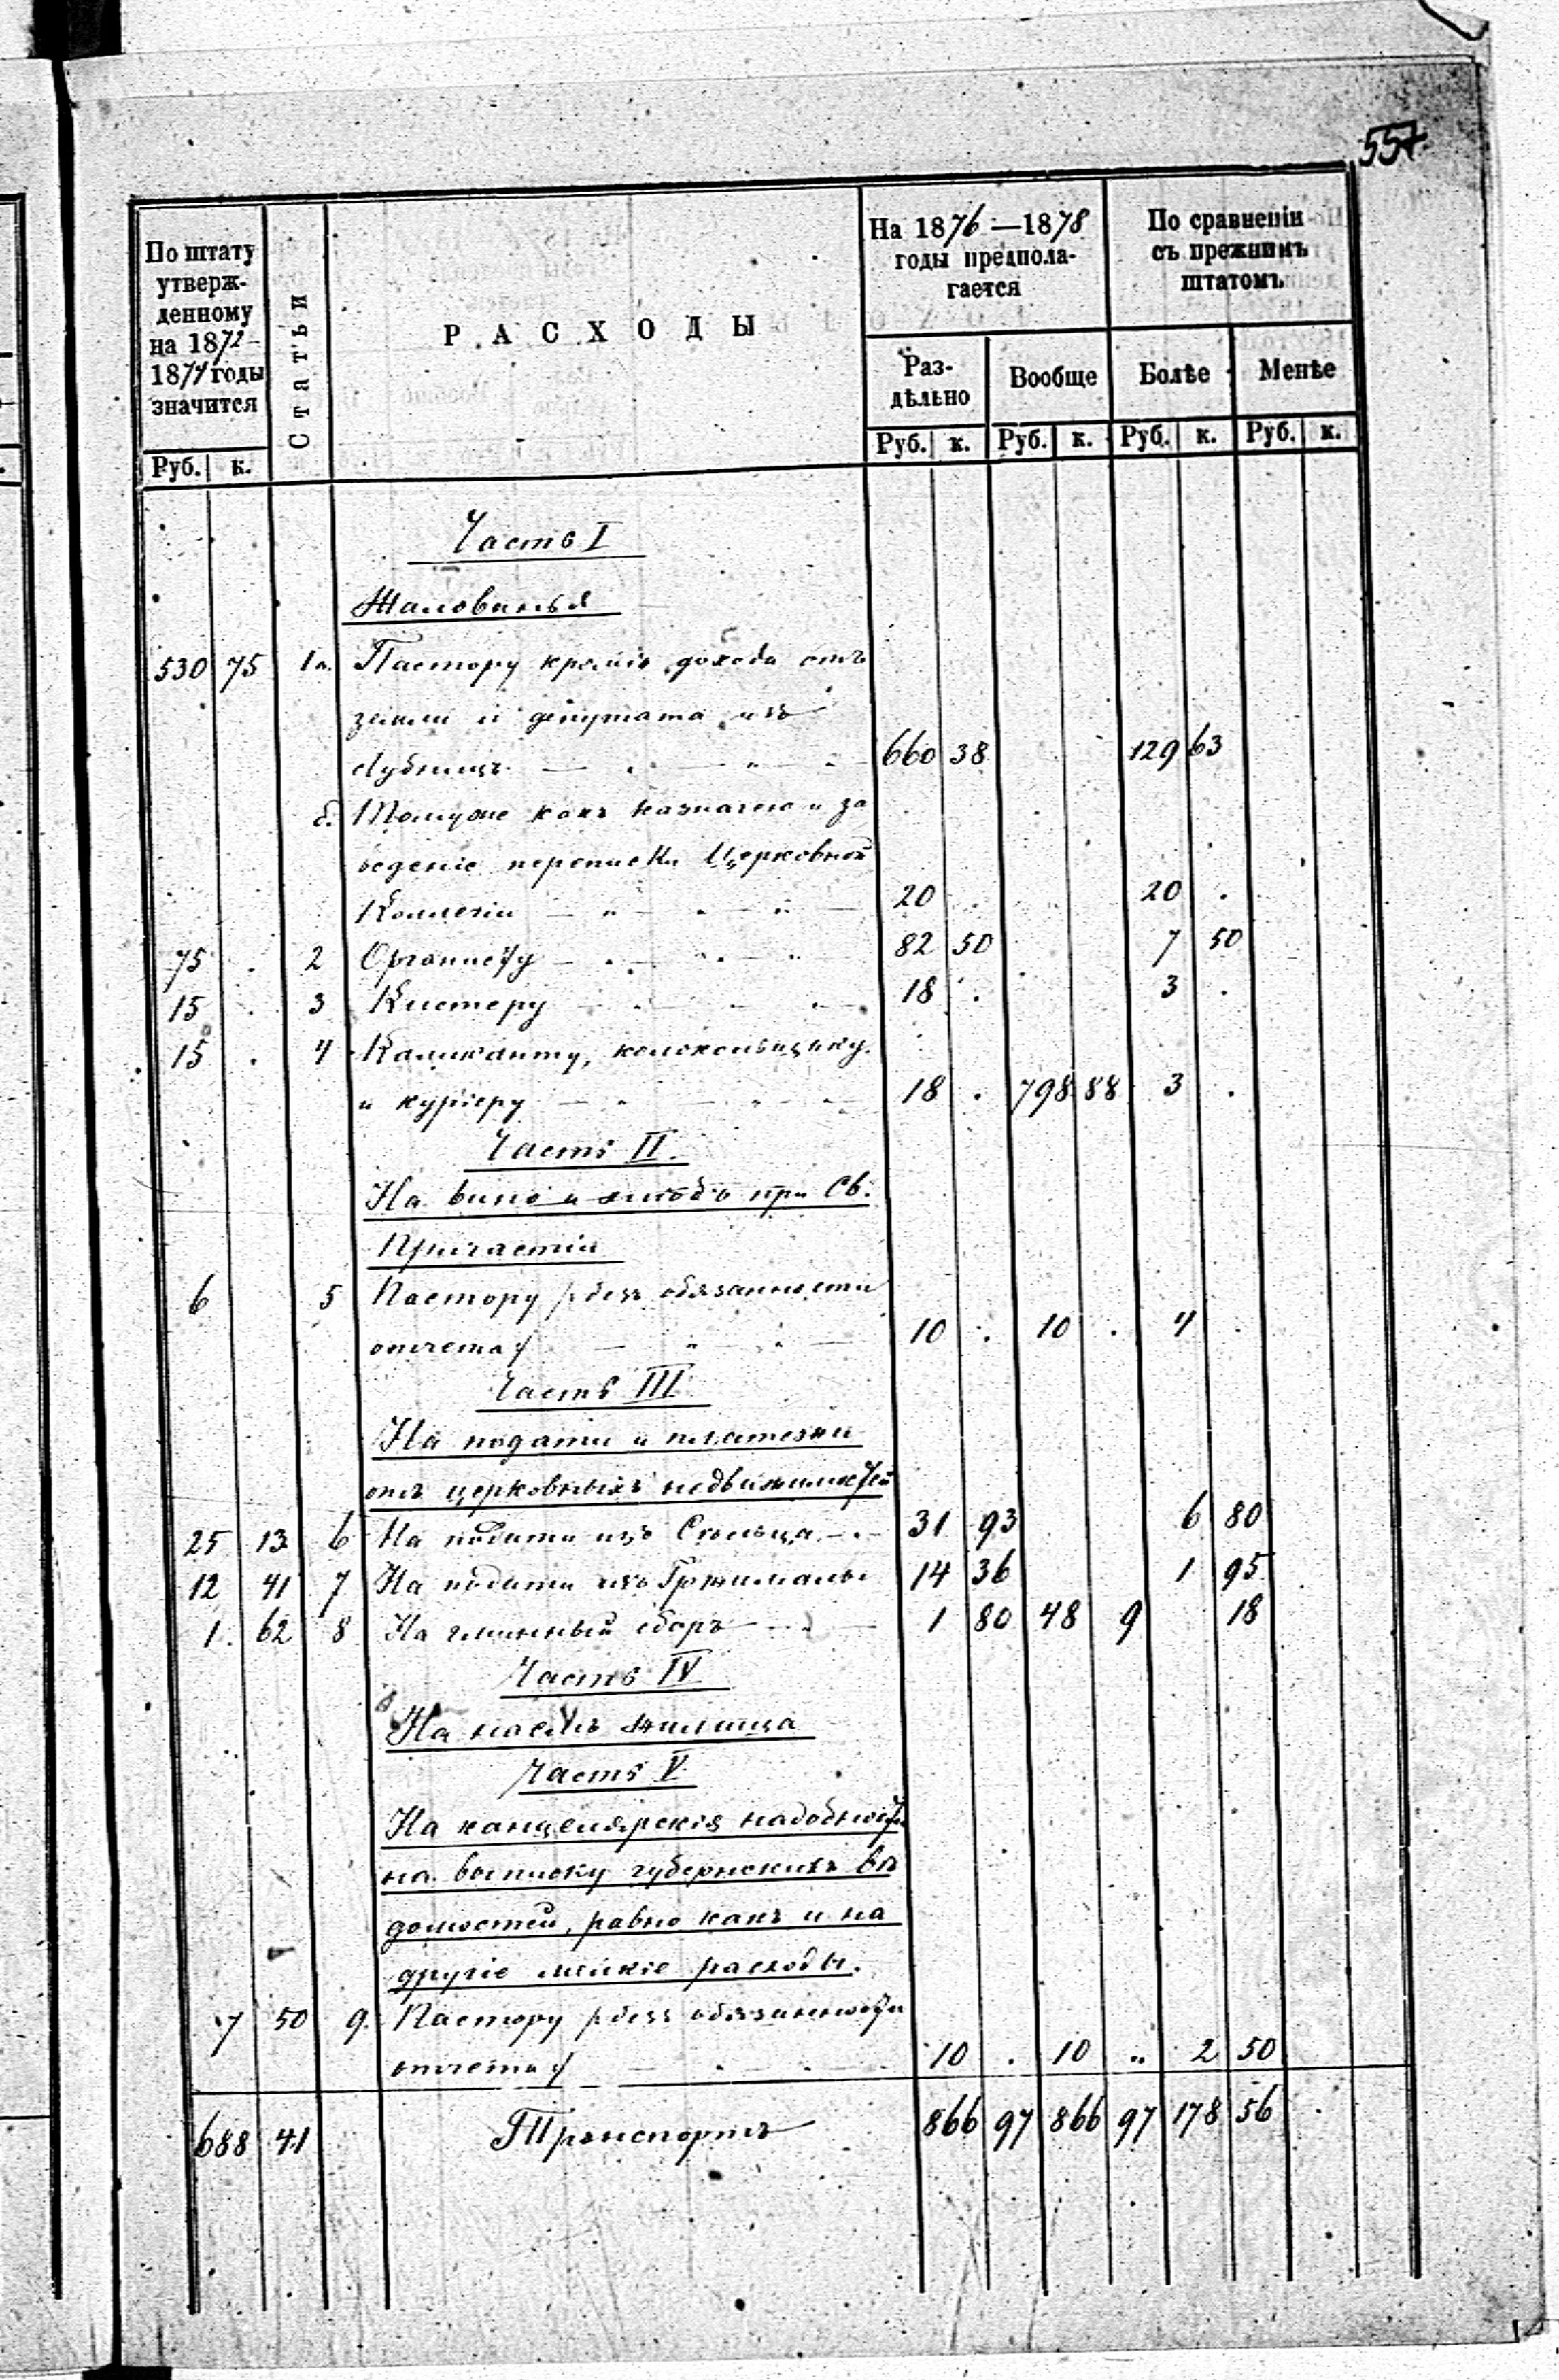 557.
По штату утверж-денному на 1872-1874 годы значится
Статьи
РАСХОДЫ
На 1876—1878 годы предпола-гается
По сравненіи съ прежнимъ штатомъ
Раз-дѣльно
Вообще
Болѣе
Менѣе
Руб. к.
Руб. к. Руб. к. Руб. к. Руб. к.
Часть I
Жалованья
530 75 1а. Пастору кромѣ дохода отъ
земли и депутата изъ
660 38 129 63
б. Томуже какъ казначею и за
веденіе переписки Церковной
Коллегіи 20 . 20 .
75 . 2 Органисту 82 50 7 50
15 . 3 Кистеру 18 . 3 .
15 . 4 Каликанту, колокольщику
и курьеру 18 . 798 88 3 .
Часть II.
На вино и хлѣбъ при Св.
Причастіи
6 5 Пастору /безъ обязанности
отчета/ 10 . 10 . 4 .
Часть III
На подати и платежи
отъ церковныхъ недвижимостей
25 13 6 На подати изъ 31 93 6 80
12 41 7 На подати изъ 14 36 1 95
1. 62 8 На гминный сборъ 1 80 48 9 18
Часть IV
На наемъ жилища
Часть V
На канцелярскія надобности
на выписку губернскихъ вѣ
домостей, равно какъ и на
другіе мелкіе расходы.
7 50 9. Пастору /безъ обязанности
отчета/ 10 . 10 „ 2 50
688 41 Транспортъ 866 97 866 97 178 56